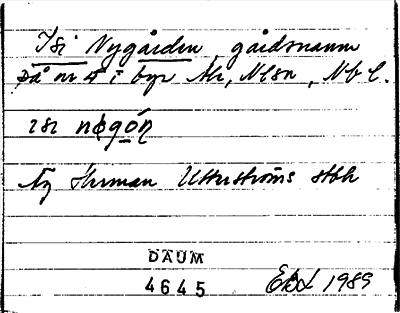 Isi Nygården, gårdsnamn
på nr 4 i byn Åk, Nlsn, Nbl.
ısı nøgóŋ
Ny Herman Utterströms stbk
DAUM
4645 EBL 1989